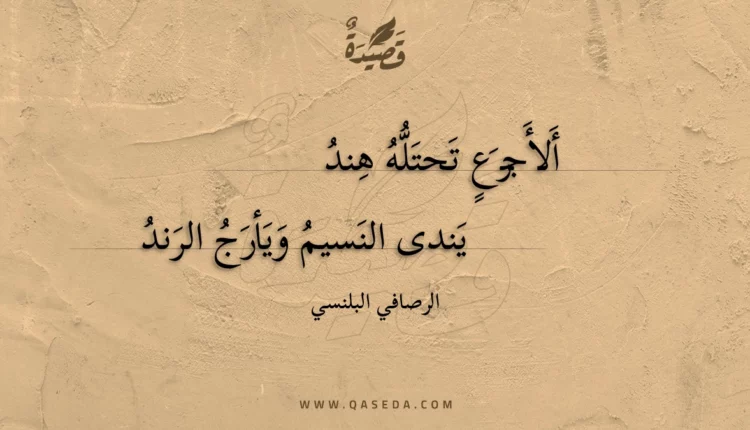 قَصِيدَةٌ
أَلأَجرَعٍ تَحتَلُّهُ هِندُ
يَندى النَسيمُ وَيَأرَجُ الرَندُ
الرصافي البلنسي
WWW.QASEDA.COM